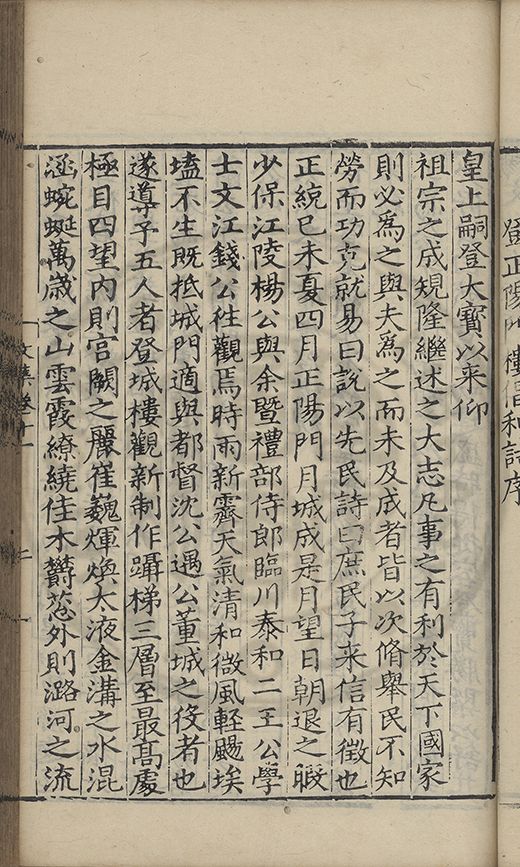 登正陽門樓倡和詩序
皇上嗣登大寳以来仰
祖宗之成規隆繼述之大志凡事之有利於天下國家
則必為之與夫為之而未及成者皆以次脩舉民不知
勞而功克就易曰説以先民詩曰庶民子来信有徵也
正統己未夏四月正陽門月城成是月望日朝退之暇
少保江陵楊公與余暨禮部侍郎臨川泰和二王公學
士文江錢公徃觀焉時雨新霽天氣清和微風輕颺埃
壒不生既抵城門適與都督沈公遇公董城之役者也
遂導予五人者登城樓觀新制作躡梯三層至最髙處
極目四望内則宫闕之麗崔巍煇煥太液金溝之水混
涵蜿蜒萬歲之山雲霞繚繞佳木欝葱外則潞河之流